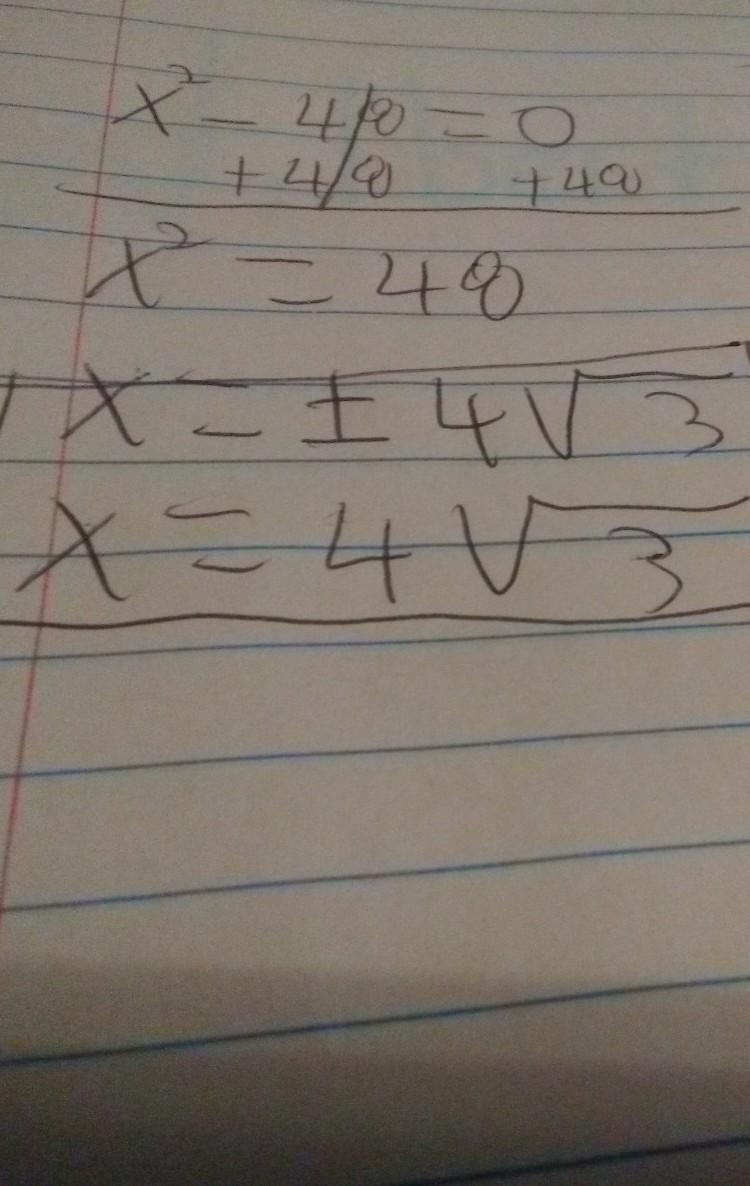 x² - 48 = 0
+48 +48
x² = 48
x = ± 4√3
x = 4√3